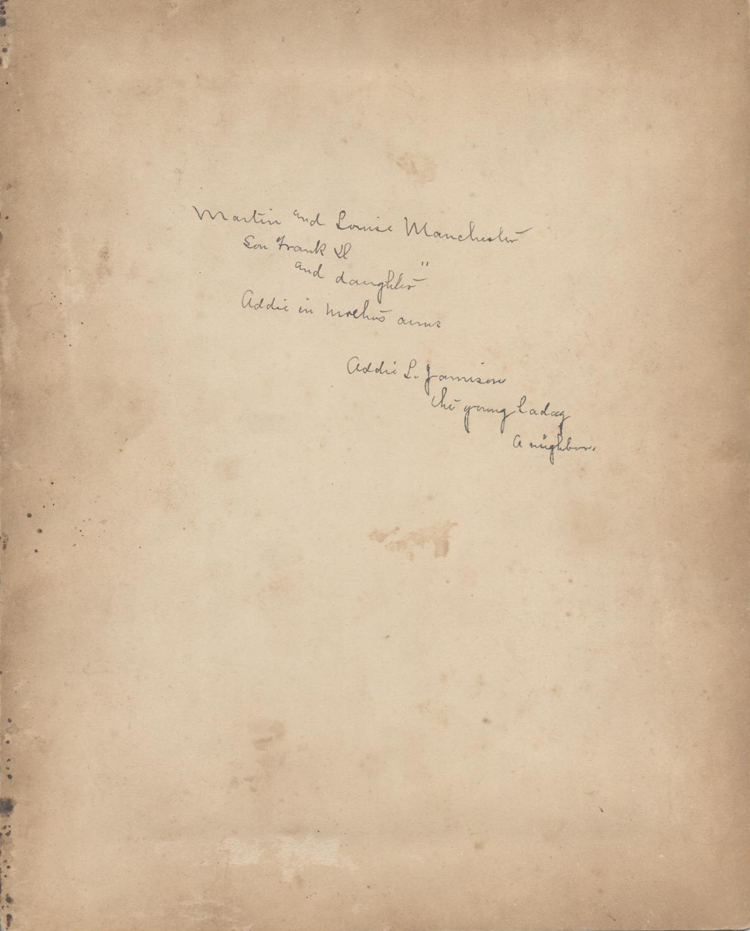 Martin and Louise Manchester
Son Frank "
and daughter
Addie in Mothers arms
Addie L. Jamison
the young lady
a neighbor.